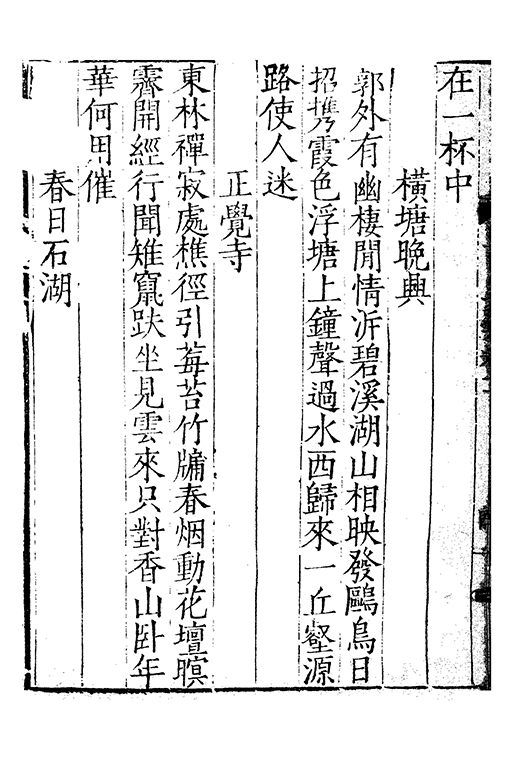 在一杯中
橫塘晚興
郭外有幽棲閒情泝碧溪湖山相映發鷗鳥日
招携霞色浮塘上鐘聲過水西歸來一丘壑源
路使人迷
正覺寺
東林禪寂處樵徑引莓苔竹牗春烟動花壇暝
霽開經行聞雉竄趺坐見雲來只對香山卧年
華何用催
春日石湖